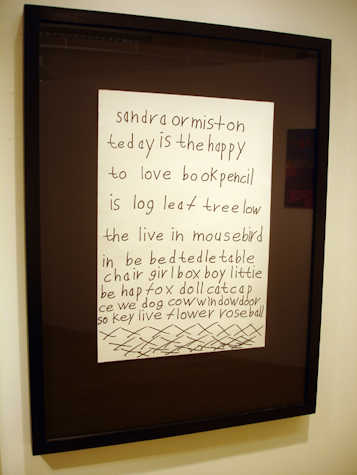 sandra ormiston
teday is the happy
to love bookpencil
is log leaf tree low
the live in mousebird
in be bedtedletable
chair girlboxboy little
be hapfox dollcatcap
ce we dog cowwindowdoor
so key live flower roseball